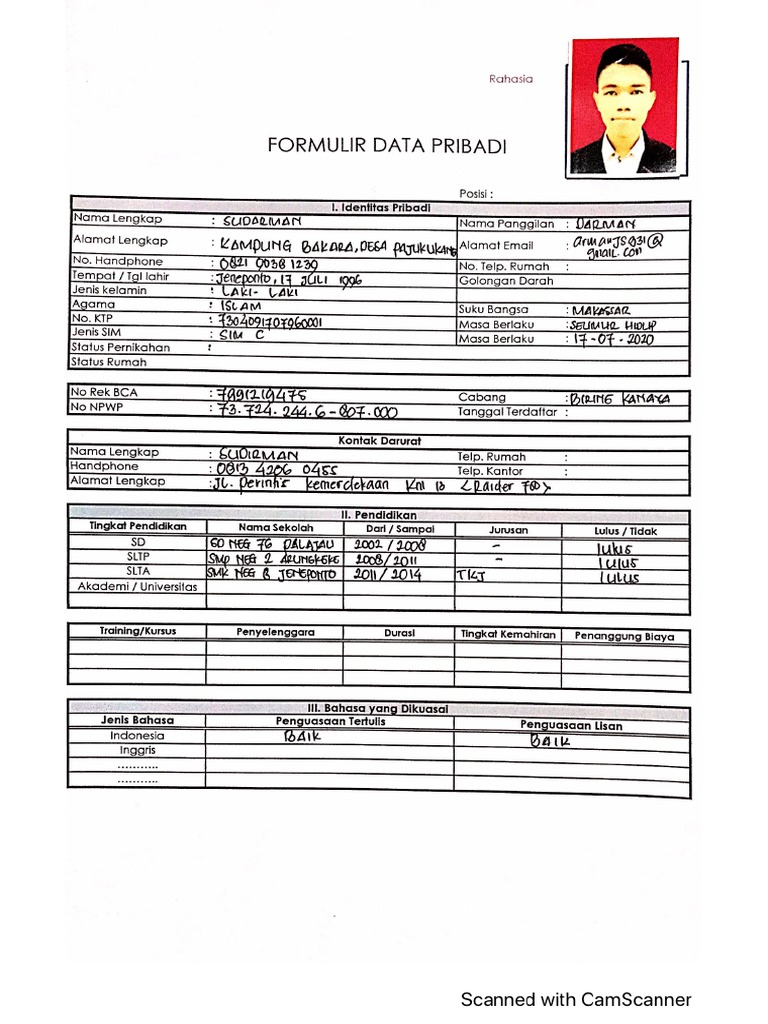 Rahasia
FORMULIR DATA PRIBADI
Posisi :
I. Identitas Pribadi
Nama Lengkap : SUDARMAN Nama Panggilan : DARMAN
Alamat Lengkap : KAMPUNG BAKARA, DESA PAJUKUKANG Alamat Email : armanjs931@gmail.com
No. Handphone : 0821 9038 1239 No. Telp. Rumah :
Tempat / Tgl lahir : Jeneponto, 17 JULI 1996 Golongan Darah
Jenis kelamin : LAKI-LAKI
Agama : ISLAM Suku Bangsa : MAKASSAR
No. KTP : 7304091707960001 Masa Berlaku : SEUMUR HIDUP
Jenis SIM : SIM C Masa Berlaku : 17-07-2020
Status Pernikahan :
Status Rumah
No Rek BCA : 7891219475 Cabang : BIRING KANAYA
No NPWP : 73.724.244.6-807.000 Tanggal Terdaftar :
Kontak Darurat
Nama Lengkap : SUDIRMAN Telp. Rumah :
Handphone : 0813 4206 0455 Telp. Kantor :
Alamat Lengkap : JL. Perintis kemerdekaan KM 13 <Raider 700>
II. Pendidikan
Tingkat Pendidikan Nama Sekolah Dari / Sampai Jurusan Lulus / Tidak
SD SD NEG 76 PALAJAU 2002 / 2008 - lulus
SLTP SMP NEG 2 ARUNGKEKE 2008 / 2011 - lulus
SLTA SMK NEG 8 JENEPONTO 2011 / 2014 TKJ lulus
Akademi / Universitas
Training/Kursus Penyelenggara Durasi Tingkat Kemahiran Penanggung Biaya
III. Bahasa yang Dikuasai
Jenis Bahasa Penguasaan Tertulis Penguasaan Lisan
Indonesia BAIK BAIK
Inggris
..........
..........
Scanned with CamScanner